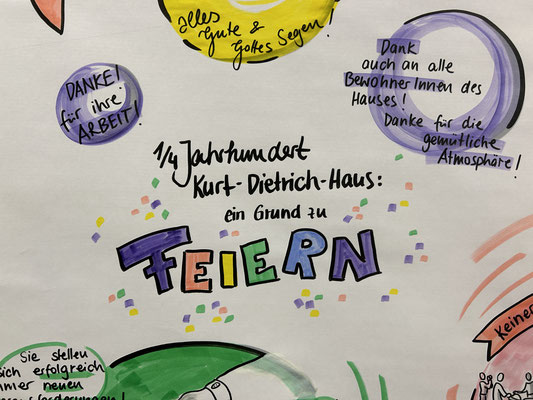 Alles
Gute &
Gottes Segen!
DANKE!
für ihre
ARBEIT!
Dank
auch an alle
BewohnerInnen des
Hauses!
Danke für die
gemütliche
Atmosphäre!
1/4 Jahrhundert
Kurt-Dietrich-Haus:
ein Grund zu
FEIERN
Keiner
Sie stellen
sich erfolgreich
immer neuen